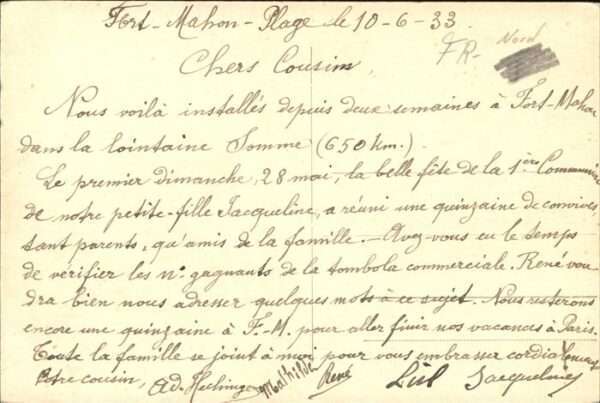 Fort-Mahon-Plage le 10-6-33
FR- Nord
Chers Cousin,
Nous voilà installés depuis deux semaines à Fort-Mahon
dans la lointaine Somme (650 km.)
Le premier dimanche, 28 mai, la belle fête de la 1ère Communion
de notre petite-fille Jacqueline, a réuni une quinzaine de convives,
tant parents, qu'amis de la famille. — Avez-vous eu le temps
de vérifier les nos gagnants de la tombola commerciale. René vou-
dra bien nous adresser quelques mots à ce sujet. Nous resterons
encore une quinzaine à F.-M. pour aller finir nos vacances à Paris.
Toute la famille se joint à moi pour vous embrasser cordialement
Votre cousin, Ad. Mathilde René Jacqueline